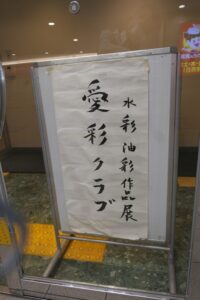 水彩油彩作品展
愛彩クラブ